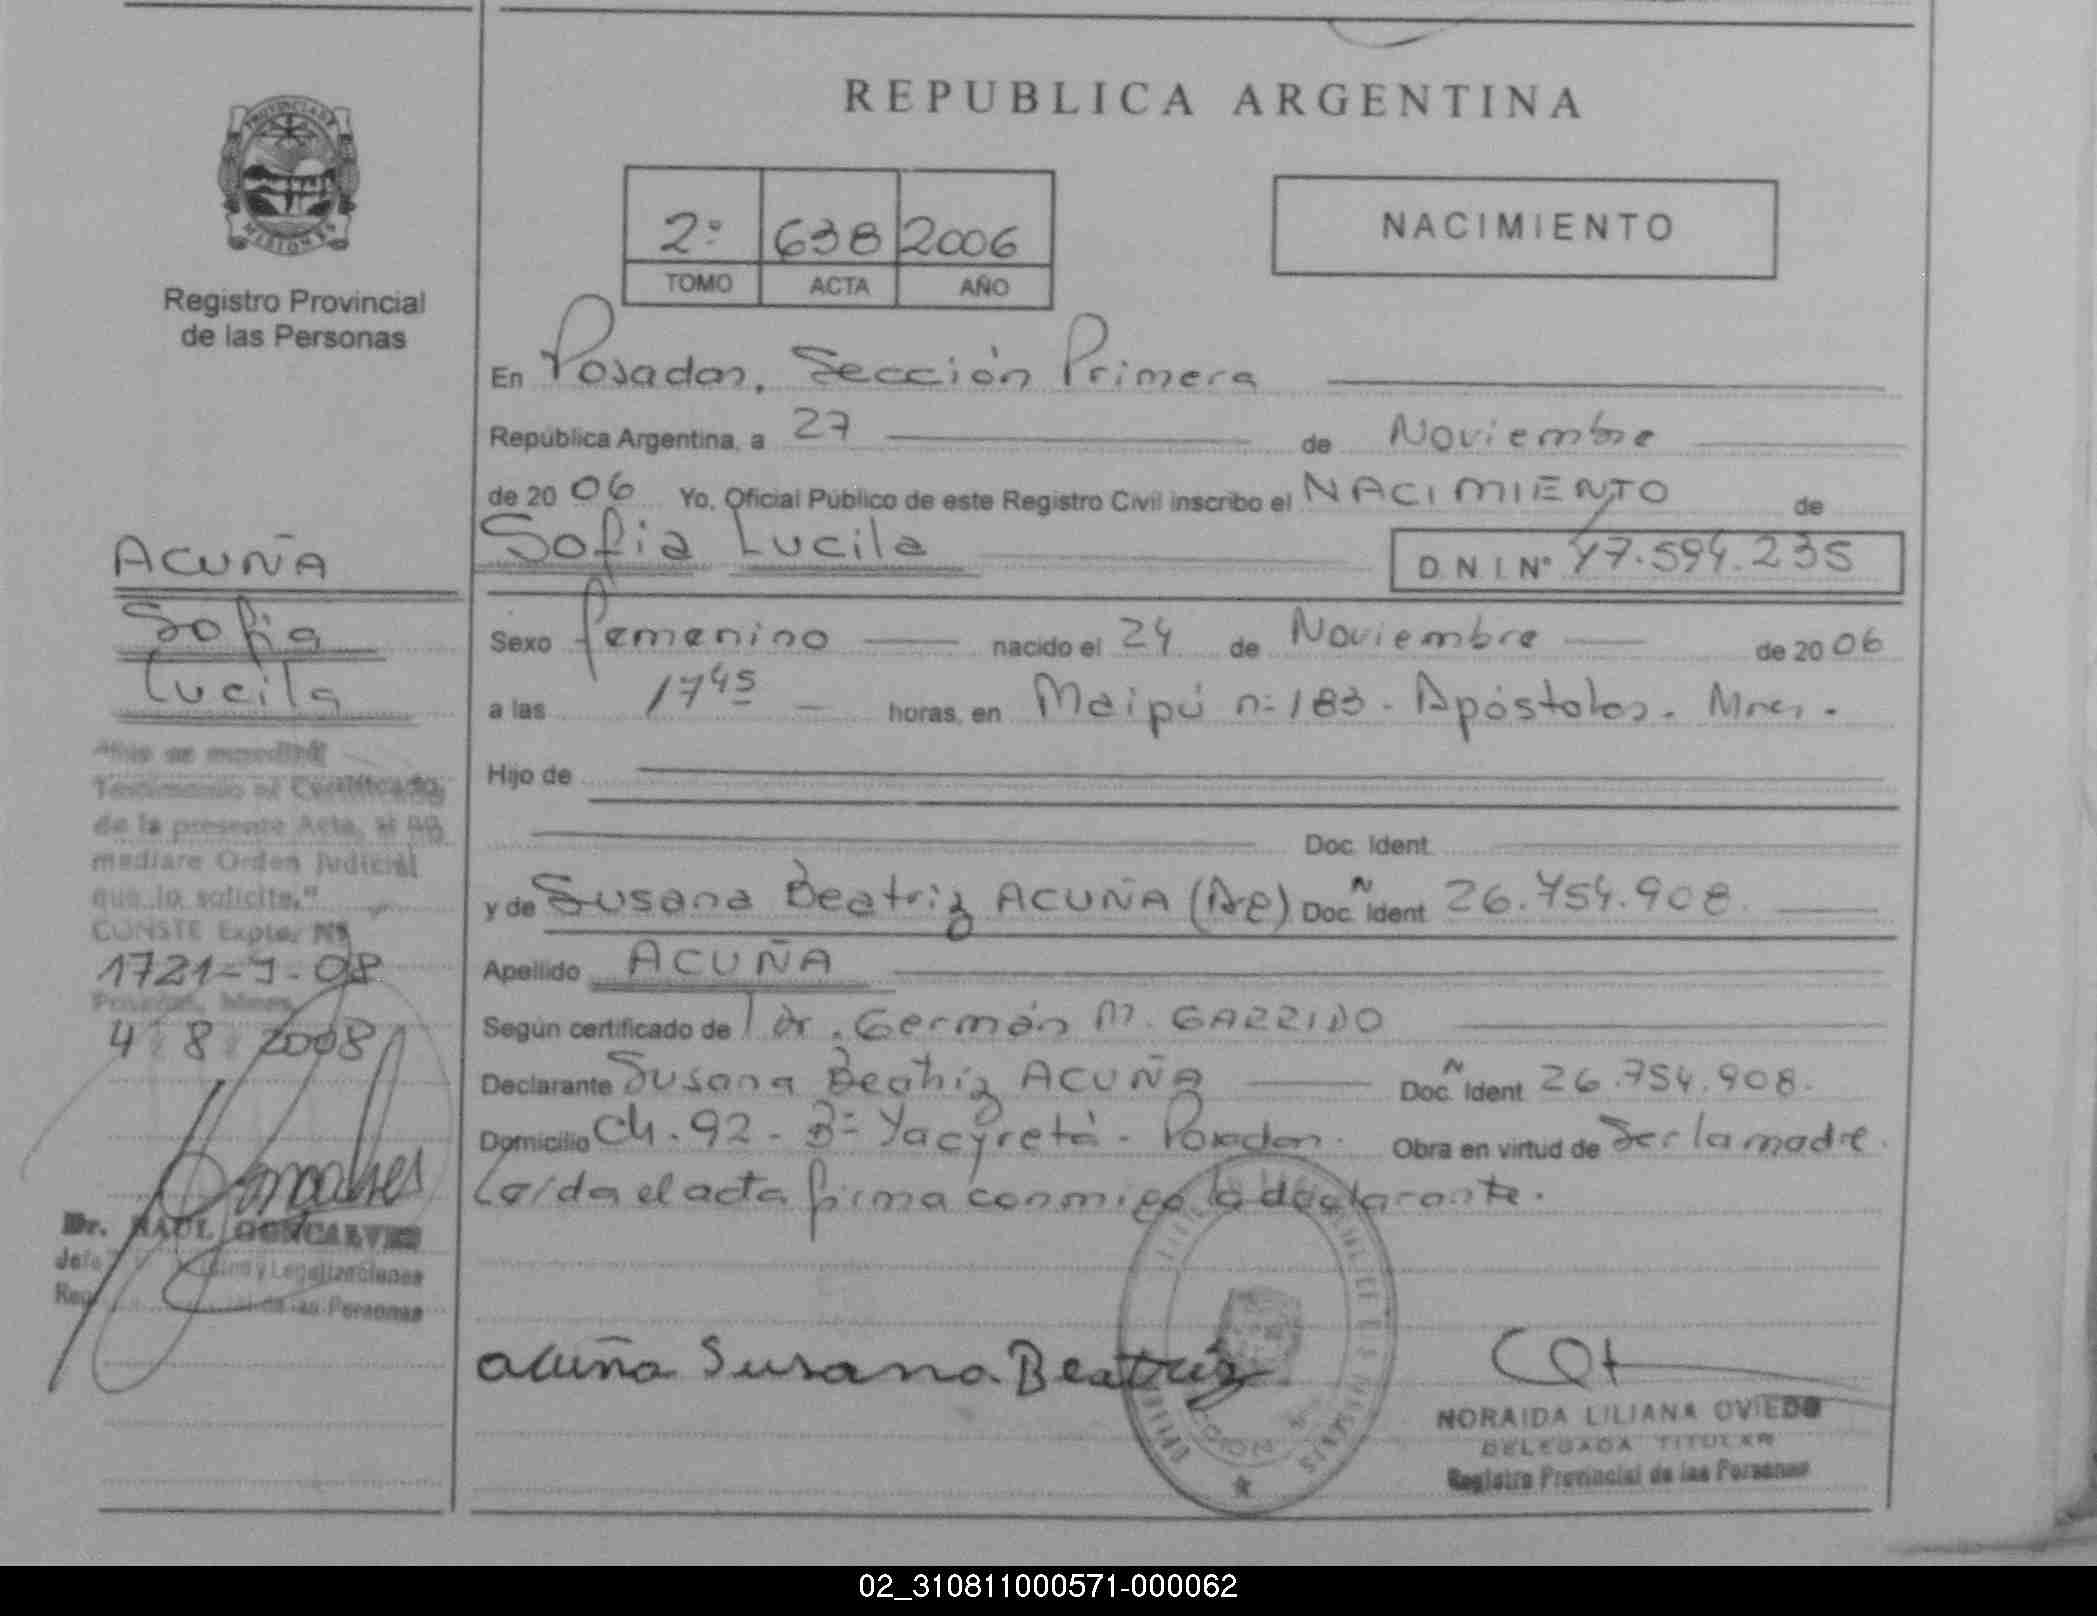 REPUBLICA ARGENTINA
PROVINCIA DE
MISIONES
Registro Provincial
de las Personas
2º 638 2006
TOMO ACTA AÑO
NACIMIENTO
En Posadas, Sección Primera
República Argentina, a 27 de Noviembre
de 2006 Yo, Oficial Público de este Registro Civil inscribo el NACIMIENTO de
Sofia Lucila D.N.I. Nº 47.594.235
Sexo femenino nacido el 24 de Noviembre de 2006
a las 17 45 horas, en Maipú nº 183 - Apóstoles - Mnes.
Hijo de
Doc. Ident.
y de Susana Beatriz ACUÑA (Ar) Doc. N Ident. 26.754.908.
Apellido ACUÑA
Según certificado de Dr. Germán M. GARRIDO
Declarante Susana Beatriz ACUÑA Doc. N Ident. 26.754.908.
Domicilio Ch. 92 - Bº Yacyretá - Posadas. Obra en virtud de Ser la madre.
Leída el acta firma conmigo la declarante.
Acuña Susana Beatriz
NORAIDA LILIANA OVIEDO
DELEGADA TITULAR
Registro Provincial de las Personas
ACUÑA
Sofia
Lucila
se expedirá
Testimonio ni Certificado
de la presente Acta, si no
mediare Orden Judicial
que lo solicite."
CONSTE Expte. Nº
1721-J-08
Posadas, Mnes.
4 8 2008
Dr. RAUL GONCALVES
Jefe y Legalizaciones
de las Personas
02_310811000571-000062